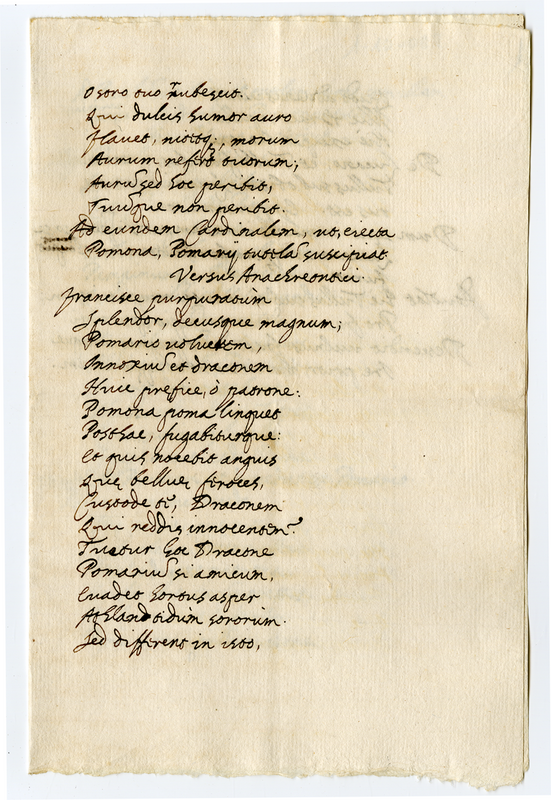 Osoro tuo rubescit.
Qui dulcis humor auro
flauet, nititq;, morum
Aurum refert tuorum;
Aurũ sed hoc peribit,
Tuũque non peribit.
Ad eundem Cardinalem, ut, eiecta
Pomona, Pomarij tutelã suscipiat
Versus Anachreontici
Francisce purpuratum
Splendor, decusque magnum;
Pomario volucrem,
Innoxiũ et draconem
Huic prefice, ò patrone:
Pomona poma linquet
Posthac, fugabiturque:
Et quis nocebit anguis
Que, bellue, feroces,
Custode tẽ, Draconem
Qui reddis innocentem?
Tueatur hoc Dracone
Pomariũ si amicum,
Euadet hortus asper
Athlantidũm sororum.
Sed different in isto,